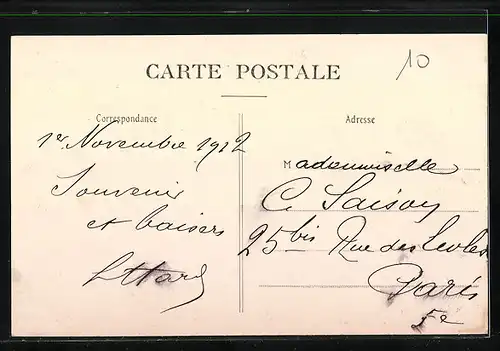 10
CARTE POSTALE
Correspondance
Adresse
1er Novembre 1912
Souvenir
et baisers
Mademoiselle
C. Saison
25 bis Rue des Ecoles
Paris
5e